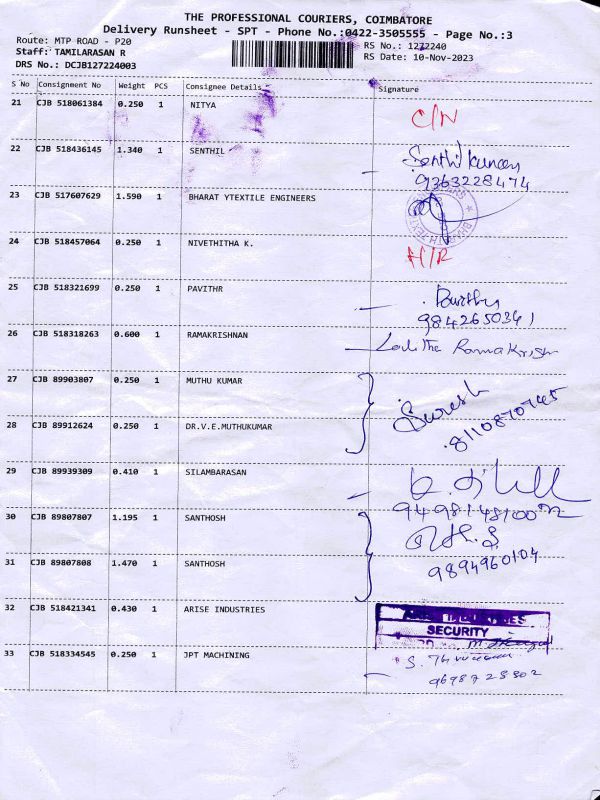 THE PROFESSIONAL COURIERS, COIMBATORE
Delivery Runsheet - SPT - Phone No.:0422-3505555 - Page No.:3
Route: MTP ROAD - P20
RS No.: 1272240
Staff: TAMILARASAN R
RS Date: 10-Nov-2023
DRS No.: DCJB127224003
S No Consignment No Weight PCS Consignee Details Signature
21 CJB 518061384 0.250 1 NITYA C/N
22 CJB 518436145 1.340 1 SENTHIL Senthil kumar
9363228474
23 CJB 517607629 1.590 1 BHARAT YTEXTILE ENGINEERS
24 CJB 518457064 0.250 1 NIVETHITHA K. H/R
25 CJB 518321699 0.250 1 PAVITHR
9842650341
26 CJB 518318263 0.600 1 RAMAKRISHNAN Lalitha Ramakrish
27 CJB 89903807 0.250 1 MUTHU KUMAR Suresh
8110870745
28 CJB 89912624 0.250 1 DR.V.E.MUTHUKUMAR
29 CJB 89939309 0.410 1 SILAMBARASAN
30 CJB 89807807 1.195 1 SANTHOSH
31 CJB 89807808 1.470 1 SANTHOSH 9894960104
32 CJB 518421341 0.430 1 ARISE INDUSTRIES
SECURITY
33 CJB 518334545 0.250 1 JPT MACHINING